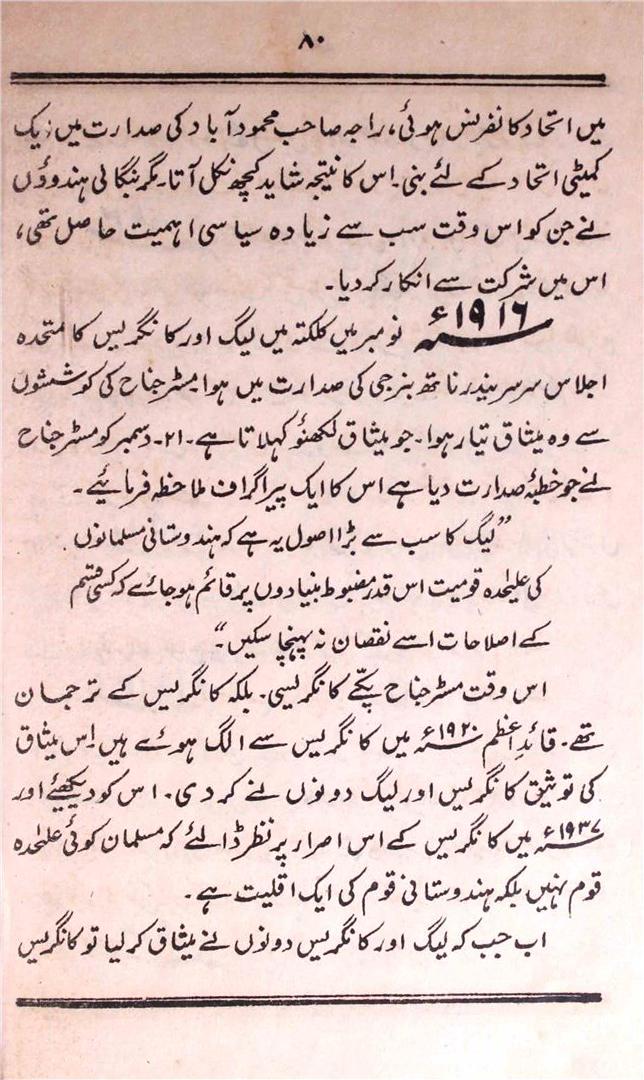 ۸۰
میں اتحاد کانفرنس ہوئی، راجہ صاحب محمود آباد کی صدارت میں ایک
کمیٹی اتحاد کے لئے بنی۔ اس کا نتیجہ شاید کچھ نکل آتا۔ مگر بنگالی ہندوؤں
نے جن کو اس وقت سب سے زیادہ سیاسی اہمیت حاصل تھی،
اس میں شرکت سے انکار کر دیا۔
۱۹۱۶ء نومبر میں کلکتہ میں لیگ اور کانگریس کا متحدہ
اجلاس سر سریندر ناتھ بنرجی کی صدارت میں ہوا۔ مسٹر جناح کی کوششوں
سے وہ میثاق تیار ہوا۔ جو میثاق لکھنؤ کہلاتا ہے۔ ۲۱۔ دسمبر کو مسٹر جناح
نے جو خطبۂ صدارت دیا ہے اس کا ایک پیراگراف ملاحظہ فرمائیے۔
”لیگ کا سب سے بڑا اصول یہ ہے کہ ہندوستانی مسلمانوں
کی علیٰحدہ قومیت اس قدر مضبوط بنیادوں پر قائم ہو جائے کہ کسی قسم
کے اصلاحات اسے نقصان نہ پہنچا سکیں“۔
اس وقت مسٹر جناح پکّے کانگریسی۔ بلکہ کانگریس کے ترجمان
تھے۔ قائدِ اعظم ۱۹۲۰ء میں کانگریس سے الگ ہوئے ہیں۔ اس میثاق
کی توثیق کانگریس اور لیگ دونوں نے کر دی۔ اس کو دیکھئے اور
۱۹۳۷ء میں کانگریس کے اس اصرار پر نظر ڈالئے کہ مسلمان کوئی علیٰحدہ
قوم نہیں بلکہ ہندوستانی قوم کی ایک اقلیت ہے۔
اب جب کہ لیگ اور کانگریس دونوں نے میثاق کر لیا تو کانگریس